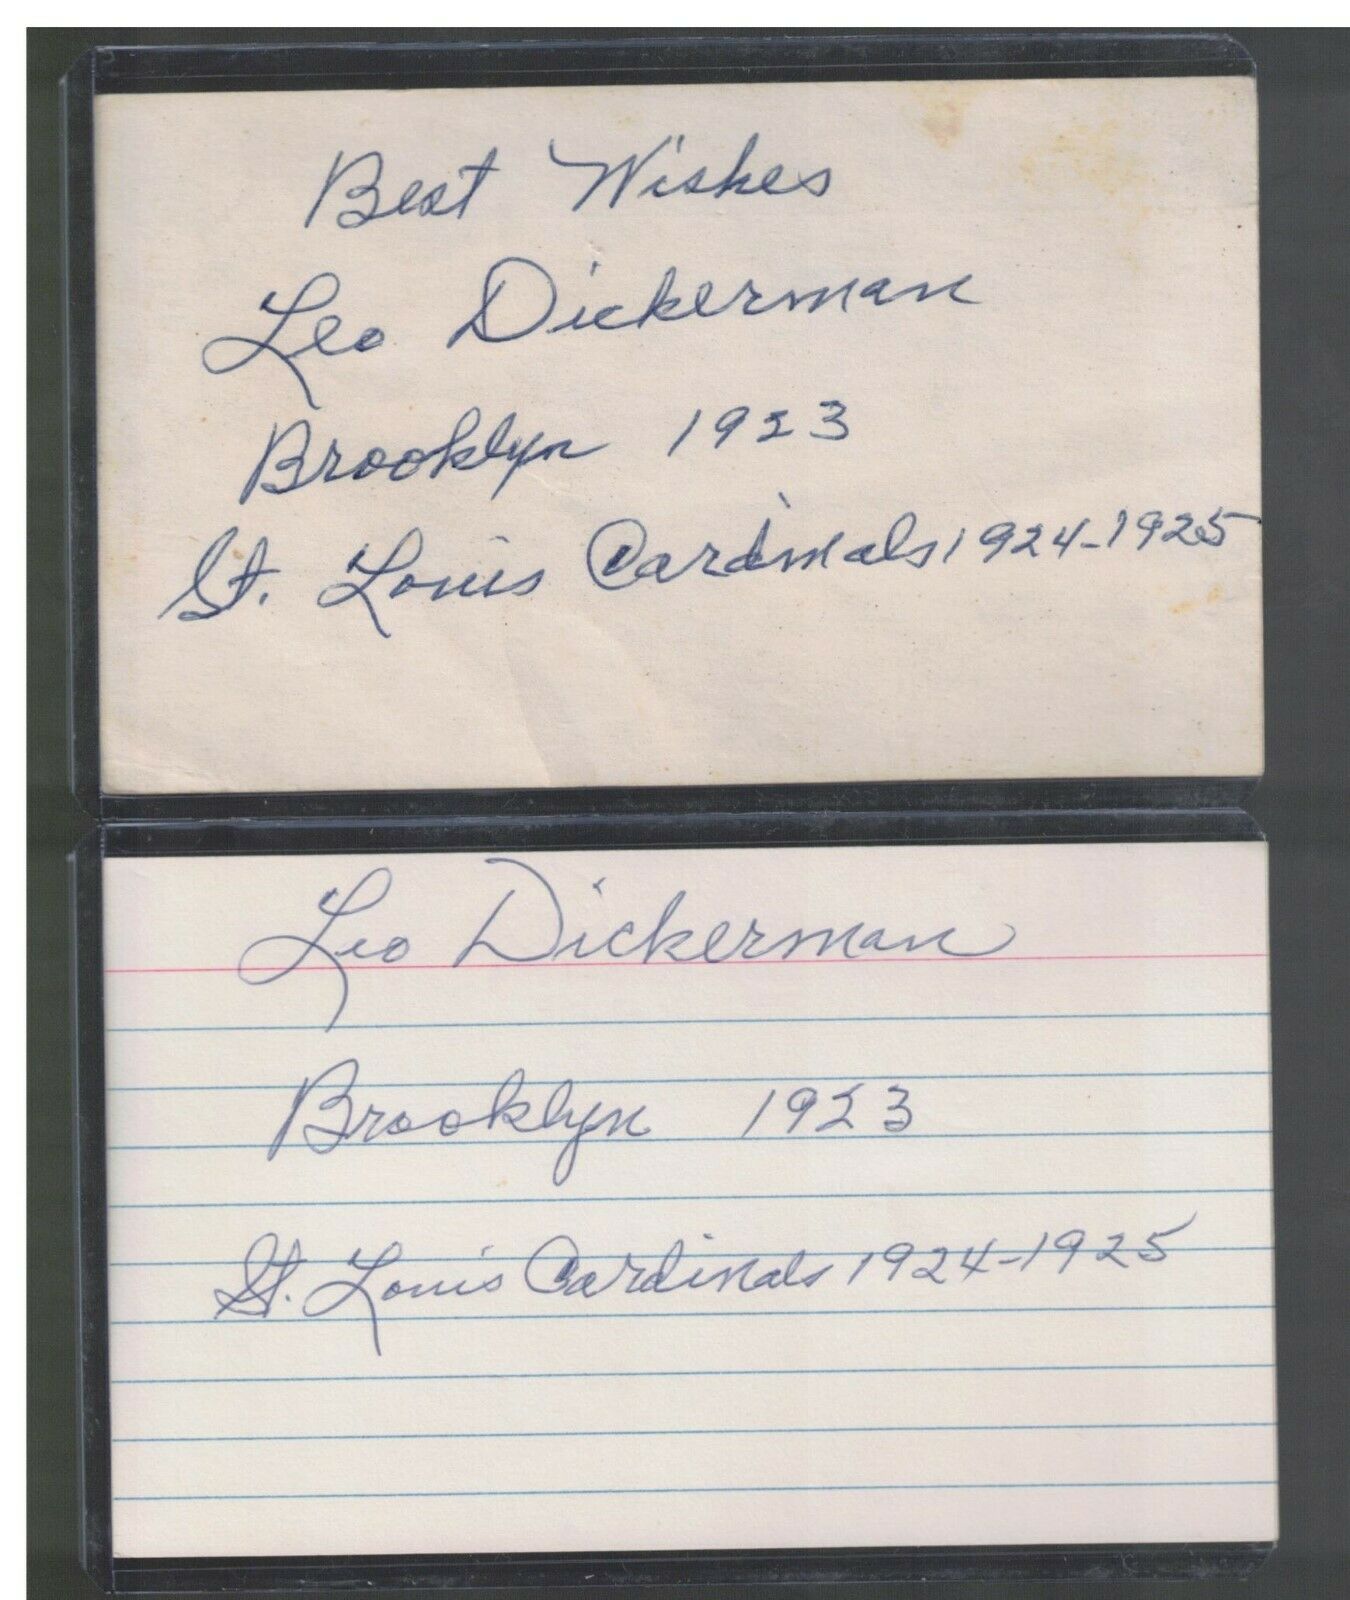 Best Wishes
Leo Dickerman
Brooklyn 1923
St. Louis Cardinals 1924-1925
Leo Dickerman
Brooklyn 1923
St. Louis Cardinals 1924-1925